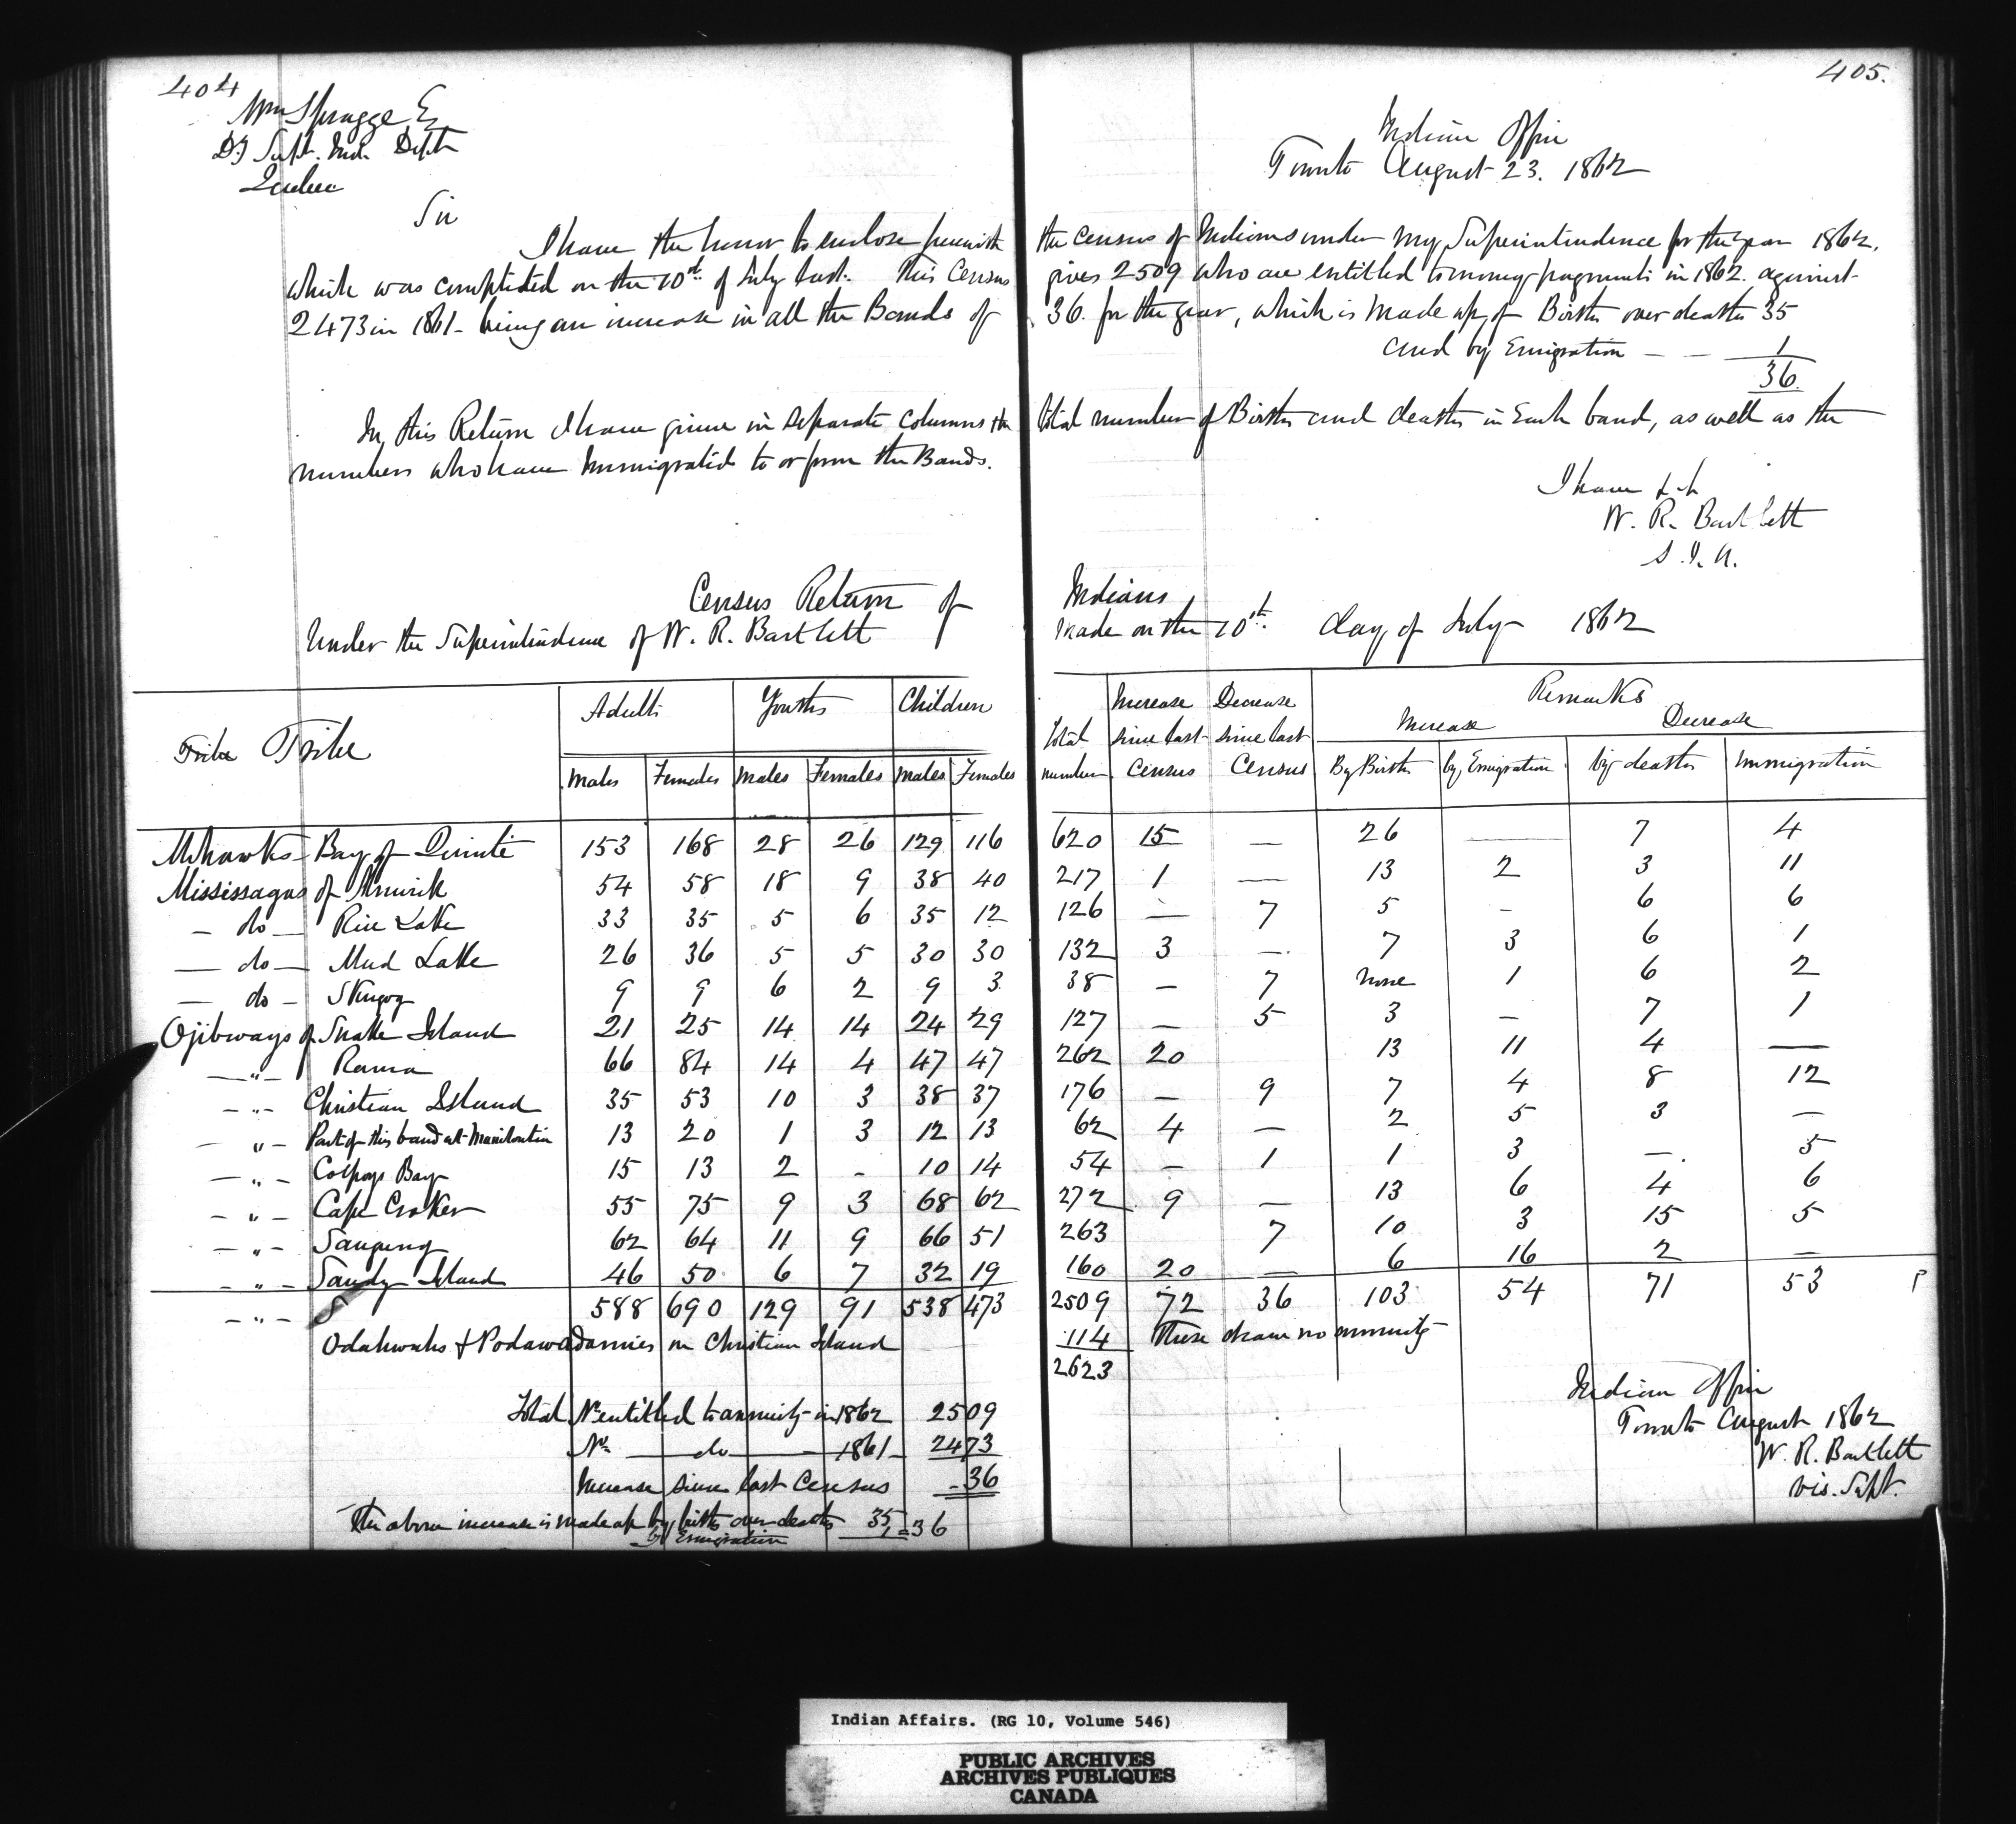 404
405.
Wm Spragge Eq
Dy Supt. Ind. Dept
Quebec
Indian Office
Toronto August 23. 1862
Sir
I have the honor to enclose herewith the Census of Indians under my Superintendence for the year 1862,
which was completed on the 10th of July last. This Census gives 2509 who are entitled to money payments in 1862. against
2473 in 1861 - being an increase in all the Bands of 36. for the year, which is made up, of Births over deaths 35
and by Emigration - - 1
36.
In this Return I have given in separate columns the total number of Births and deaths in Each band, as well as the
numbers who have Immigrated to or from the Bands.
I have &c
W. R. Bartlett
S. I. A.
Census Return of Indians
Under the Superintendence of W. R. Bartlett made on the 10th. day of July 1862
Tribe Tribe | Adults | Youths | Children | Total number | Increase since last Census | Decrease since last Census | Remarks
Increase | Decrease
Males | Females | Males | Females | Males | Females | By Births | by Emigration | by deaths | Immigration
Mohawks - Bay of Quinte 153 168 28 26 129 116 620 15 — 26 — 7 4
Mississagas of Alnwick 54 58 18 9 38 40 217 1 — 13 2 3 11
— do — Rice Lake 33 35 5 6 35 12 126 — 7 5 - 6 6
— do — Mud Lake 26 36 5 5 30 30 132 3 — 7 3 6 1
— do - Skugog 9 9 6 2 9 3 38 - 7 none 1 6 2
Ojibways of Snake Island 21 25 14 14 24 29 127 — 5 3 - 7 1
— " — Rama 66 84 14 4 47 47 262 20 13 11 4 —
- " - Christian Island 35 53 10 3 38 37 176 — 9 7 4 8 12
— " - Part of this band at Manitoulin 13 20 1 3 12 13 62 4 — 2 5 3 —
— " - Colpoys Bay 15 13 2 - 10 14 54 — 1 1 3 —. 5
- " - Cape Croker 55 75 9 3 68 62 272 9 — 13 6 4 6
— " - Saugeeng 62 64 11 9 66 51 263 7 10 3 15 5
- " - Sandy Island 46 50 6 7 32 19 160 20 — 6 16 2 —
- " - S 588 690 129 91 538 473 2509 72 36 103 54 71 53
Odahwahs & Podawadamies on Christian Island 114 These draw no annuity
2623
Total No entitled to annuity in 1862 2509
No — do — 1861 - 2473
Increase since last Census - 36
The above increase is made up by births over deaths 35
by Emigration 1 = 36
Indian Office
Toronto August 1862
W. R. Bartlett
vis. Supt.
Indian Affairs. (RG 10, Volume 546)
PUBLIC ARCHIVES
ARCHIVES PUBLIQUES
CANADA